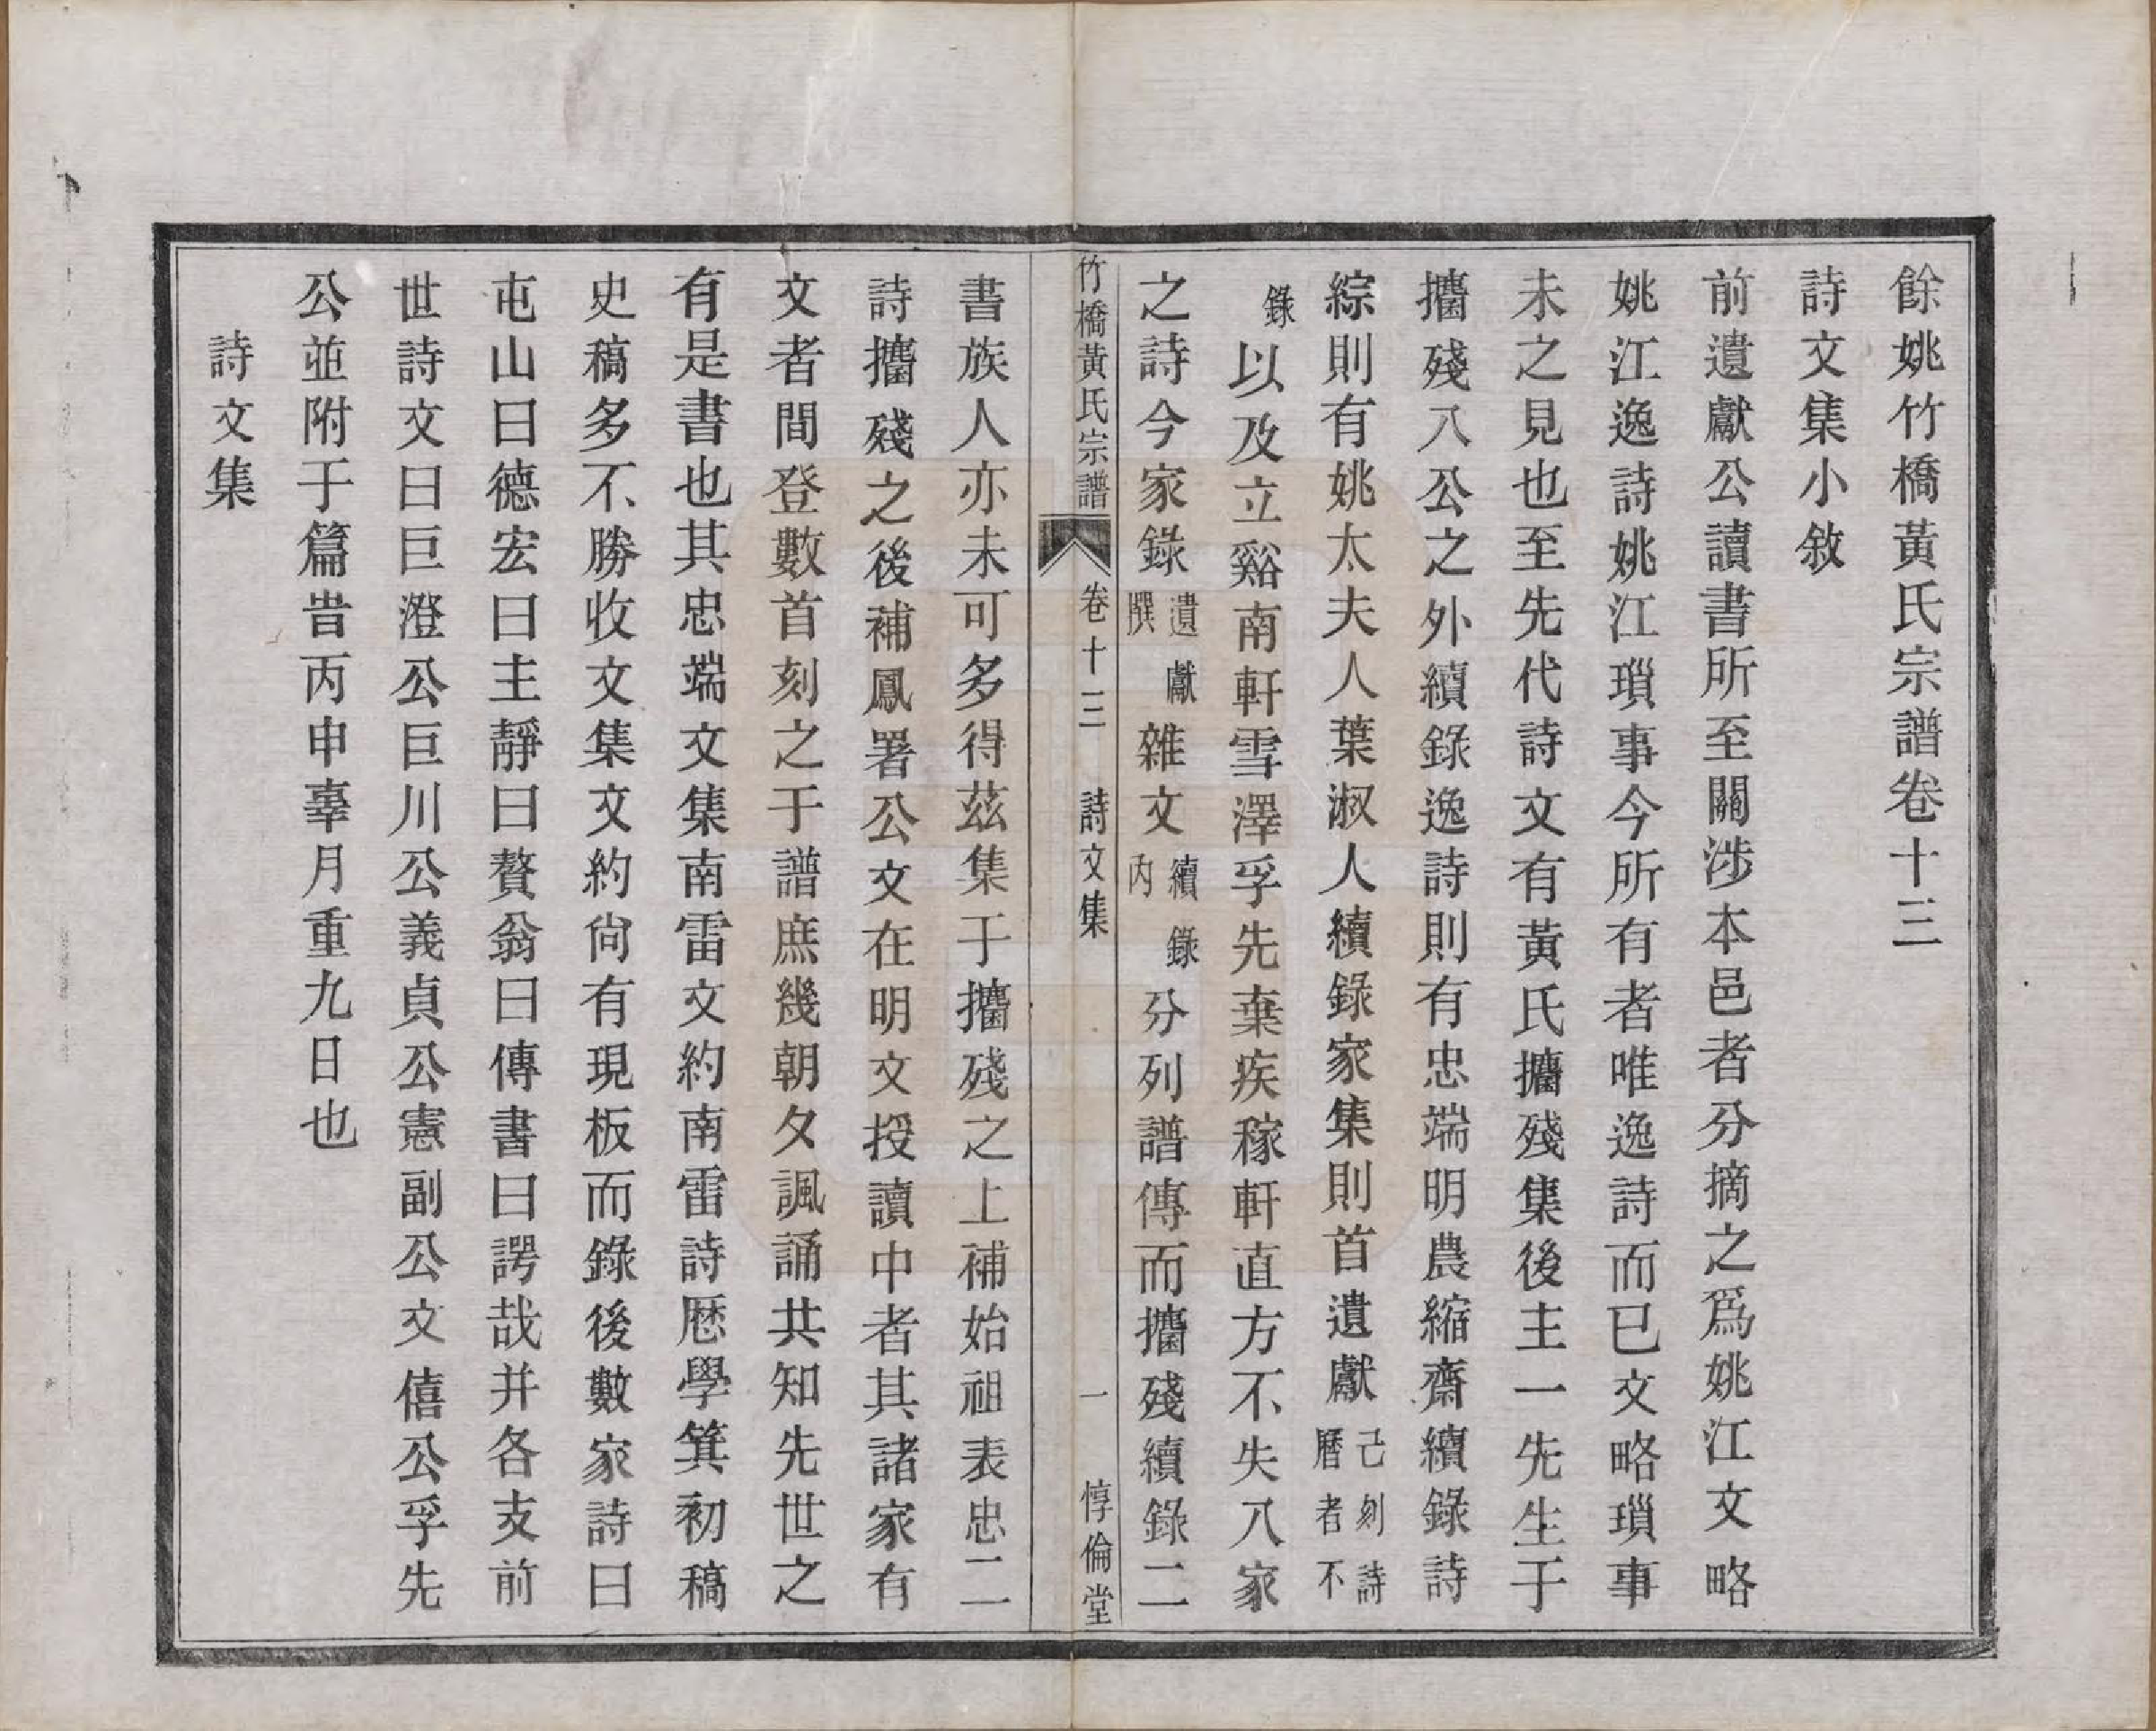 餘姚竹橋黃氏宗譜卷十三
詩文集小敘
前遺獻公讀書所至關涉本邑者分摘之爲姚江文略
姚江逸詩姚江瑣事今所有者唯逸詩而已文略瑣事
未之見也至先代詩文有黃氏攟殘集後主一先生于
攟殘八公之外續錄逸詩則有忠端明農縮齋續錄詩
綜則有姚太夫人葉淑人續錄家集則首遺獻己刻詩曆者不
錄以及立谿南軒雪澤孚先棄疾稼軒直方不失八家
之詩今家錄遺獻撰雜文續錄內分列譜傳而攟殘續錄二
竹橋黃氏宗譜 卷十三 詩文集 一 惇倫堂
書族人亦未可多得茲集于攟殘之上補始祖表忠二
詩攟殘之後補鳳署公文在明文授讀中者其諸家有
文者間登數首刻之于譜庶幾朝夕諷誦共知先世之
有是書也其忠端文集南雷文約南雷詩曆學箕初稿
史稿多不勝收文集文約尙有現板而錄後數家詩曰
屯山曰德宏曰主靜曰贅翁曰傳書曰諤哉并各支前
世詩文曰巨澄公巨川公義貞公憲副公文僖公孚先
公並附于篇旹丙申辜月重九日也
詩文集